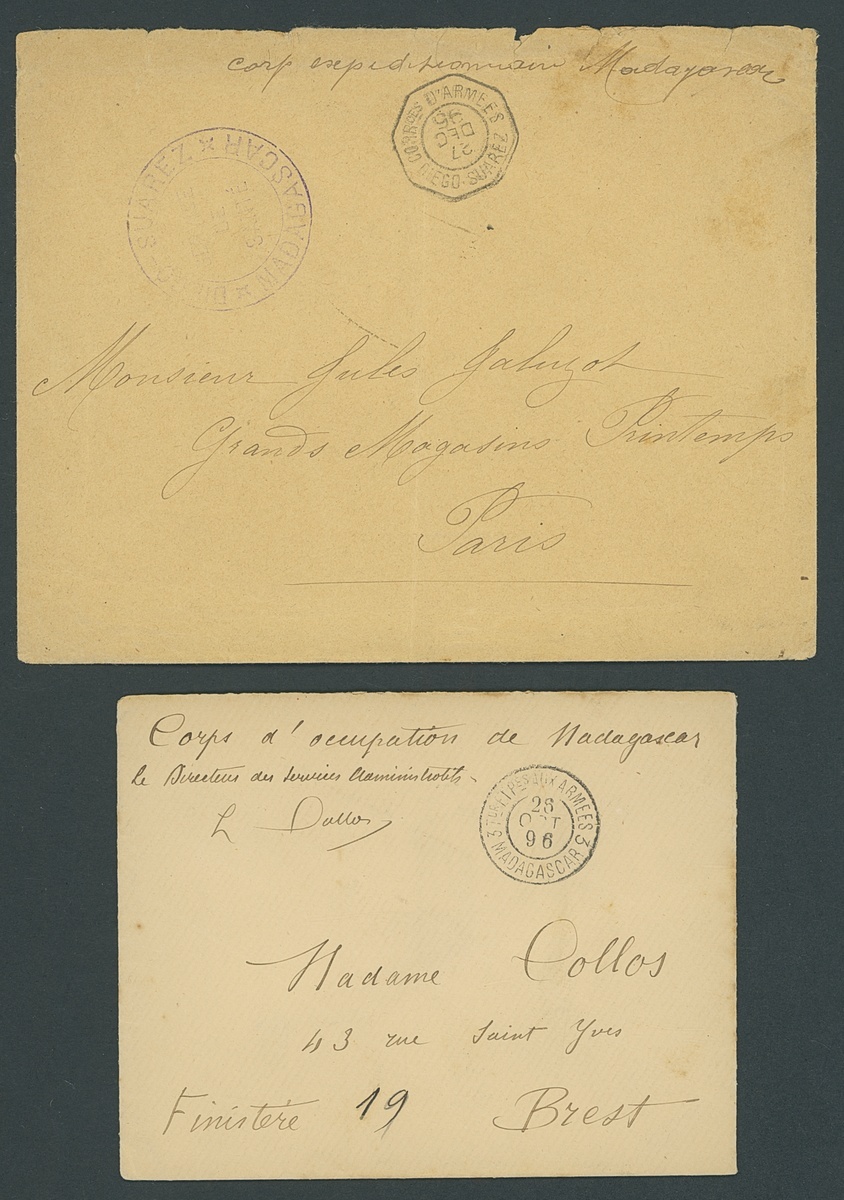 corp expeditionnair Madagascar
CORR.CES D'ARMEES
27
DEC
95
DIEGO-SUAREZ
DIEGO-SUAREZ ★ MADAGASCAR ★
SANTÉ
Monsieur Jules Galuzot
Grands Magasins Printemps
Paris
Corps d'occupation de Madagascar
Le Directeur des Services Administratifs
3 TOR. ET P.ES AUX ARMEES 3
26
OCT
96
MADAGASCAR
Madame Collos
43 rue Saint Yves
Finistère 19 Brest